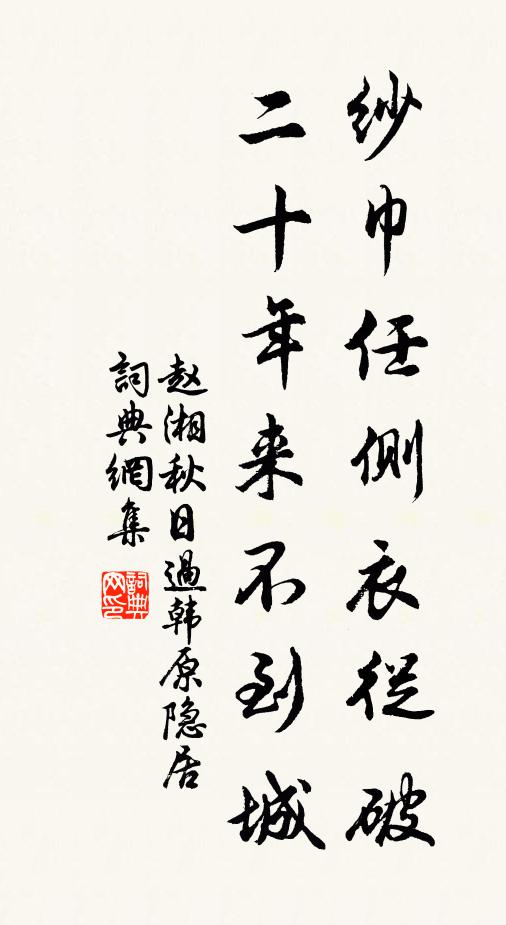 纱巾任侧衣從破
二十年来不到城
赵湘秋日過韩原隐居
詞典網集
詞典
网印